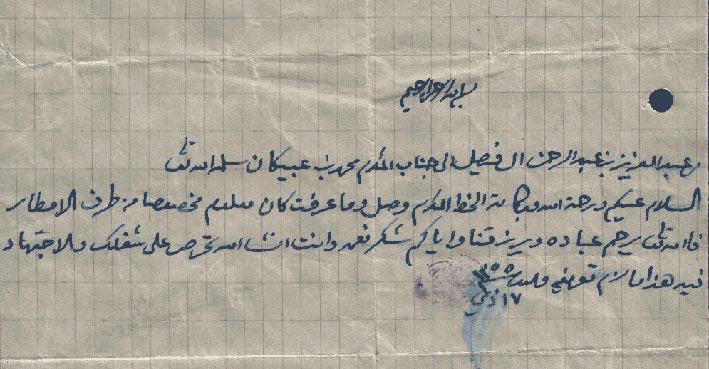 بسم الله الرحمن الرحيم
من عبد العزيز بن عبد الرحمن ال فيصل الى جناب المكرم محمد بن عبيكان سلمه الله تعالى
السلام عليكم ورحمة الله وبركاته الخط المكرم وصل وما عرفت كان معلوم مخصصا من طرف الامطار
فالله تعالى يرحم عباده ويرزقنا واياكم شكر نعمه وانت انشا الله تحرص على شغلك والاجتهاد
فيه هذا ما لزم تعريفه والسلام ١٣٥٥
١٧